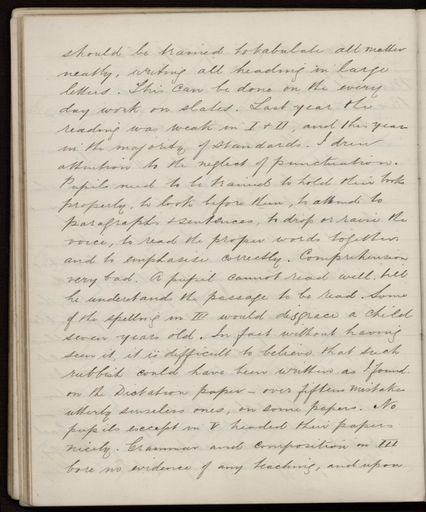 should be trained to tabulate all matter
neatly, writing all heading in large
letters. This can be done on the every
day work on slates. Last year the
reading was weak in I & II, and this year
in the majority of standards. I drew
attention to the neglect of punctuation.
Pupils need to be trained to hold their books
properly, to look before them, to attend to
paragraphs & sentences, to drop or raise the
voice, to read the proper words together
and to emphasise correctly. Comprehension
very bad. A pupil cannot read well till
he understands the passage to be read. Some
of the spelling in III would disgrace a child
seven years old. In fact without having
seen it, it is difficult to believe that such
rubbish could have been written as I found
on the Dictation paper – over fifteen mistakes
utterly senseless ones, on some papers. No
pupils except in V headed their papers
nicely. Grammar and composition in III
bore no evidence of any teaching, and upon